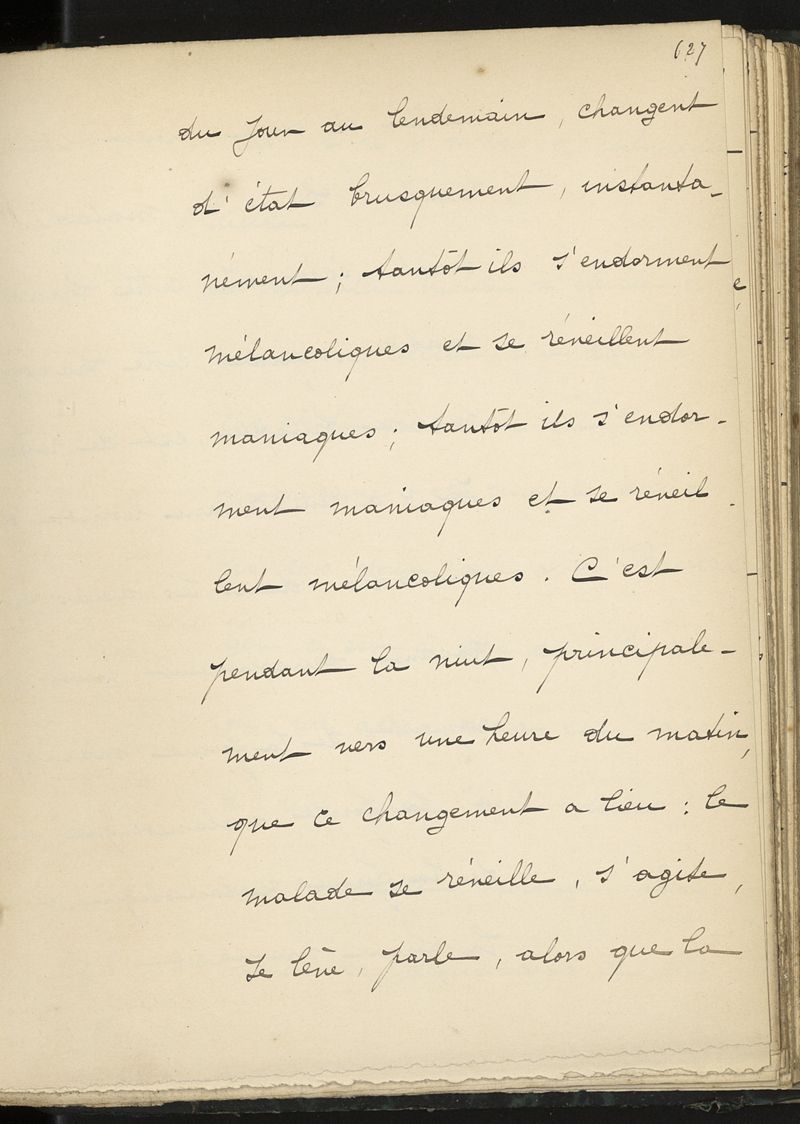 627
du jour au lendemain, changent
d'état brusquement, instanta-
nément ; tantôt ils s'endorment
mélancoliques et se réveillent
maniaques ; tantôt ils s'endor-
ment maniaques et se réveil-
lent mélancoliques. C'est
pendant la nuit, principale-
ment vers une heure du matin,
que ce changement a lieu : le
malade se réveille, s'agite,
se lève, parle, alors que la